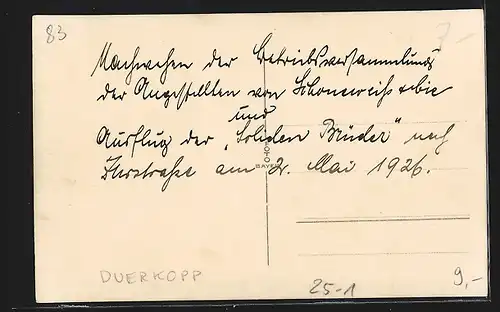 83
7-
Nachwehen der Betriebsversammlung
der Angestellten von
und
Ausflug der „Soliden Brüder" nach
am 2. Mai 1926.
DUERKOPP
25-1
9,-